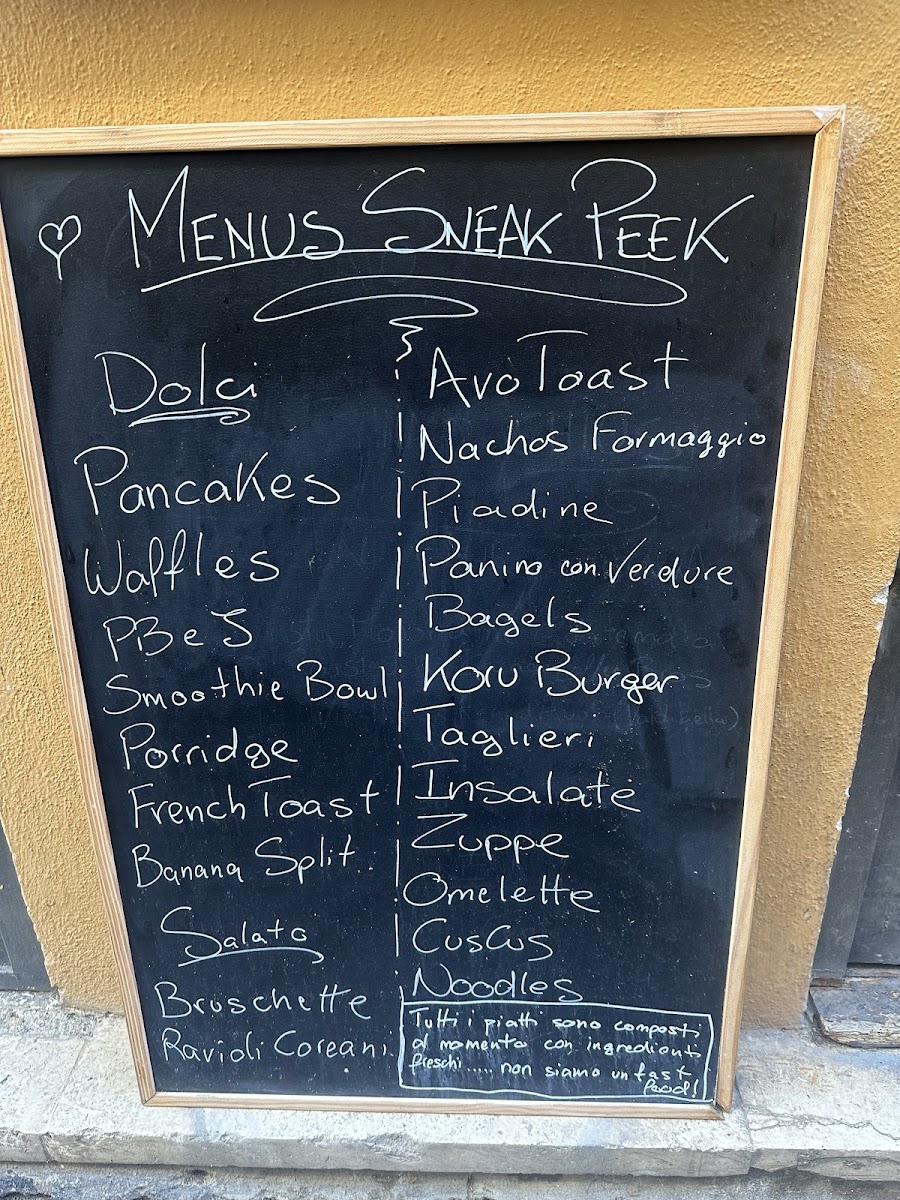 MENUS SNEAK PEEK
Dolci
Pancakes
Waffles
PB e J
Smoothie Bowl
Porridge
French Toast
Banana Split
Salato
Bruschette
Ravioli Coreani
Avo Toast
Nachos Formaggio
Piadine
Panino con Verdure
Bagels
Koru Burger
Taglieri
Insalate
Zuppe
Omelette
CusCus
Noodles
Tutti i piatti sono composti
al momento con ingredienti
freschi..... non siamo un fast
food!